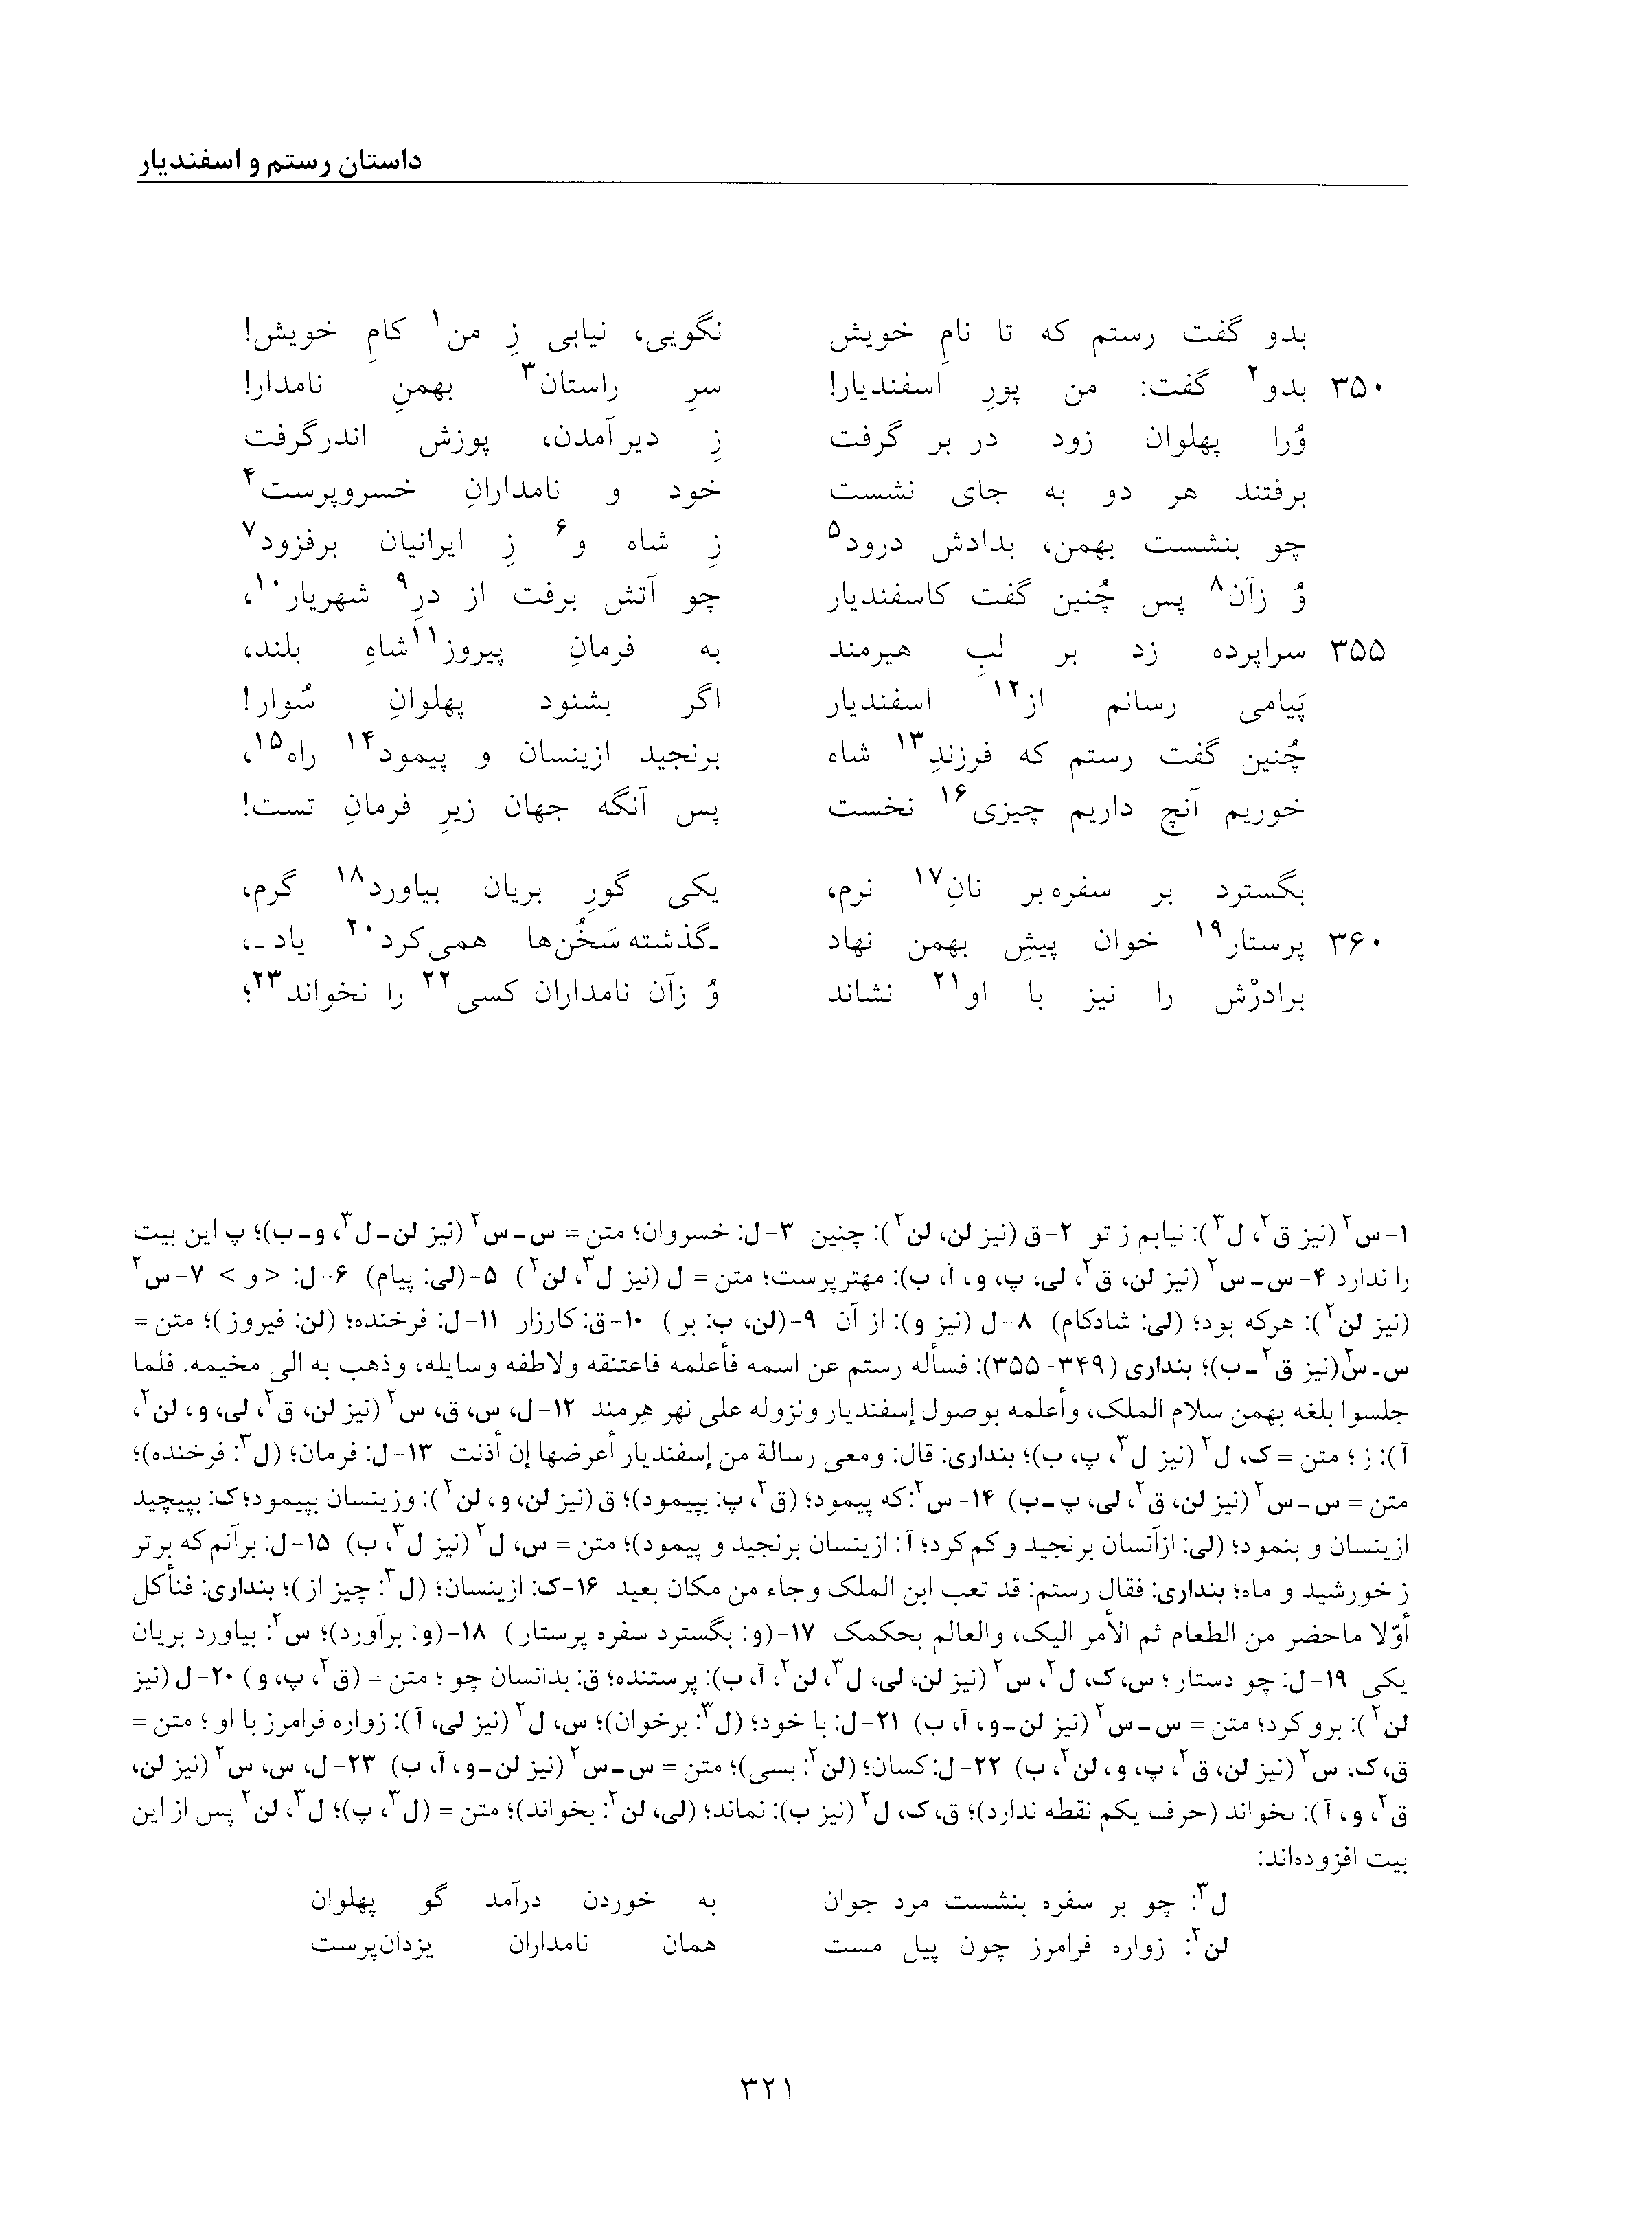 داستان رستم و اسفندیار
بدو گفت رستم که تا نامِ خویش نگویی، نیابی زِ من۱ کامِ خویش!
۳۵۰ بدو۲ گفت: من پورِ اسفندیار! سرِ راستان۳ بهمنِ نامدار!
وُرا پهلوان زود در بر گرفت زِ دیر آمدن، پوزش اندرگرفت
برفتند هر دو به جای نشست خود و نامدارانِ خسروپرست۴
چو بنشست بهمن، بدادش درود۵ زِ شاه و۶ زِ ایرانیان برفزود۷
وُ زآن۸ پس چُنین گفت کاسفندیار چو آتش برفت از درِ۹ شهریار۱۰،
۳۵۵ سراپرده زد بر لبِ هیرمند به فرمانِ پیروز۱۱ شاهِ بلند،
پَیامی رسانم از۱۲ اسفندیار اگر بشنود پهلوانِ سُوار!
چُنین گفت رستم که فرزندِ۱۳ شاه برنجید ازینسان و پیمود۱۴ راه۱۵،
خوریم آنچ داریم چیزی۱۶ نخست پس آنگه جهان زیرِ فرمانِ تست!
بگسترد بر سفره بر نانِ۱۷ نرم، یکی گورِ بریان بیاورد۱۸ گرم،
۳۶۰ پرستار۱۹ خوان پیشِ بهمن نهاد ـگذشته سَخُن‌ها همی‌کرد۲۰ یاد ـ،
برادرْش را نیز با او۲۱ نشاند وُ زآن نامداران کسی۲۲ را نخواند۲۳؛
۱- س۲ (نیز ق۲، ل۳): نیابم ز تو ۲- ق (نیز لن، لن۲): چنین ۳- ل: خسروان؛ متن = س-س۲ (نیز لن-ل۳، و-ب)؛ پ این بیت
را ندارد ۴- س-س۲ (نیز لن، ق۲، لی، پ، و، آ، ب): مهترپرست؛ متن = ل (نیز ل۳، لن۲) ۵- (لی: پیام) ۶- ل: <و> ۷- س۲
(نیز لن۲): هرکه بود؛ (لی: شادکام) ۸- ل (نیز و): از آن ۹- (لن، ب: بر) ۱۰- ق: کارزار ۱۱- ل: فرخنده؛ (لن: فیروز)؛ متن =
س-س۲ (نیز ق۲-ب)؛ بنداری (۳۴۹-۳۵۵): فسأله رستم عن اسمه فأعلمه فاعتنقه ولاطفه وسایله، وذهب به الی مخیمه. فلما
جلسوا بلغه بهمن سلام الملک، وأعلمه بوصول إسفندیار ونزوله علی نهر هرمند ۱۲- ل، س، ق، س۲ (نیز لن، ق۲، لی، و، لن۲،
آ): ز؛ متن = ک، ل۲ (نیز ل۳، پ، ب)؛ بنداری: قال: ومعی رسالة من إسفندیار أعرضها إن أذنت ۱۳- ل: فرمان؛ (ل۳: فرخنده)؛
متن = س-س۲ (نیز لن، ق۲، لی، پ-ب) ۱۴- س۲: که پیمود؛ (ق۲، پ: بپیمود)؛ ق (نیز لن، و، لن۲): وزینسان بپیمود؛ ک: بپیچید
ازینسان و بنمود؛ (لی: ازآنسان برنجید و کم کرد؛ آ: ازینسان برنجید و پیمود)؛ متن = س، ل۲ (نیز ل۳، ب) ۱۵- ل: برآنم که برتر
ز خورشید و ماه؛ بنداری: فقال رستم: قد تعب ابن الملک وجاء من مکان بعید ۱۶- ک: ازینسان؛ (ل۳: چیز از)؛ بنداری: فنأکل
أوّلا ماحضر من الطعام ثم الأمر الیک، والعالم بحکمک ۱۷- (و: بگسترد سفره پرستار) ۱۸- (و: برآورد)؛ س۲: بیاورد بریان
یکی ۱۹- ل: چو دستار؛ س، ک، ل۲، س۲ (نیز لن، لی، ل۳، لن۲، آ، ب): پرستنده؛ ق: بدانسان چو؛ متن = (ق۲، پ، و) ۲۰- ل (نیز
لن۲): برو کرد؛ متن = س-س۲ (نیز لن-و، آ، ب) ۲۱- ل: با خود؛ (ل۳: برخوان)؛ س، ل۲ (نیز لی، آ): زواره فرامرز با او؛ متن =
ق، ک، س۲ (نیز لن، ق۲، پ، و، لن۲، ب) ۲۲- ل: کسان؛ (لن۲: بسی)؛ متن = س-س۲ (نیز لن-و، آ، ب) ۲۳- ل، س، س۲ (نیز لن،
ق۲، و، آ): ٮخواند (حرف یکم نقطه ندارد)؛ ق، ک، ل۲ (نیز ب): نماند؛ (لی، لن۲: بخواند)؛ متن = (ل۳، پ)؛ ل۳، لن۲ پس از این
بیت افزوده‌اند:
ل۳: چو بر سفره بنشست مرد جوان به خوردن درآمد گو پهلوان
لن۲: زواره فرامرز چون پیل مست همان نامداران یزدان‌پرست
۳۲۱